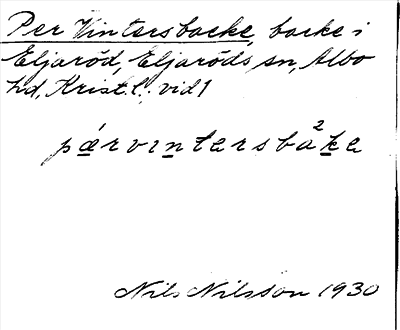 Per Vintersbacke, backe i
Eljaröd, Eljaröds sn, Albo
hd, Krist l. vid 1
pǽrvintersba²ke
Nils Nilsson 1930